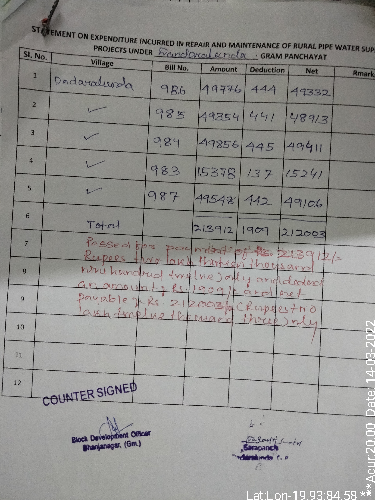 STATEMENT ON EXPENDITURE INCURRED IN REPAIR AND MAINTENANCE OF RURAL PIPE WATER SUP
PROJECTS UNDER GRAM PANCHAYAT
Sl. No. Village Bill No. Amount Deduction Net Amark
1 Dadaralunda 986 49776 444 49332
2 ✓ 985 49354 441 48913
3 ✓ 984 49856 445 49411
4 ✓ 983 15378 137 15241
5 ✓ 987 49548 442 49106
6 Total 213912 1909 212003
7 Passed for payment of Rs. 213912/-
Rupees two lakh thirteen thousand
8 nine hundred twelve) only and deduct
an amount of Rs. 1909/- and net
9 payable of Rs 212003/- (Rupees two
lakh twelve thousand three) only
10
11
12
COUNTER SIGNED
Block Development Officer
Bhanjanagar, (Gm.)
Sarapanch
G.P
Lat:Lon-19.93:84.58 ***Acur:20.00 Date: 14-03-2022